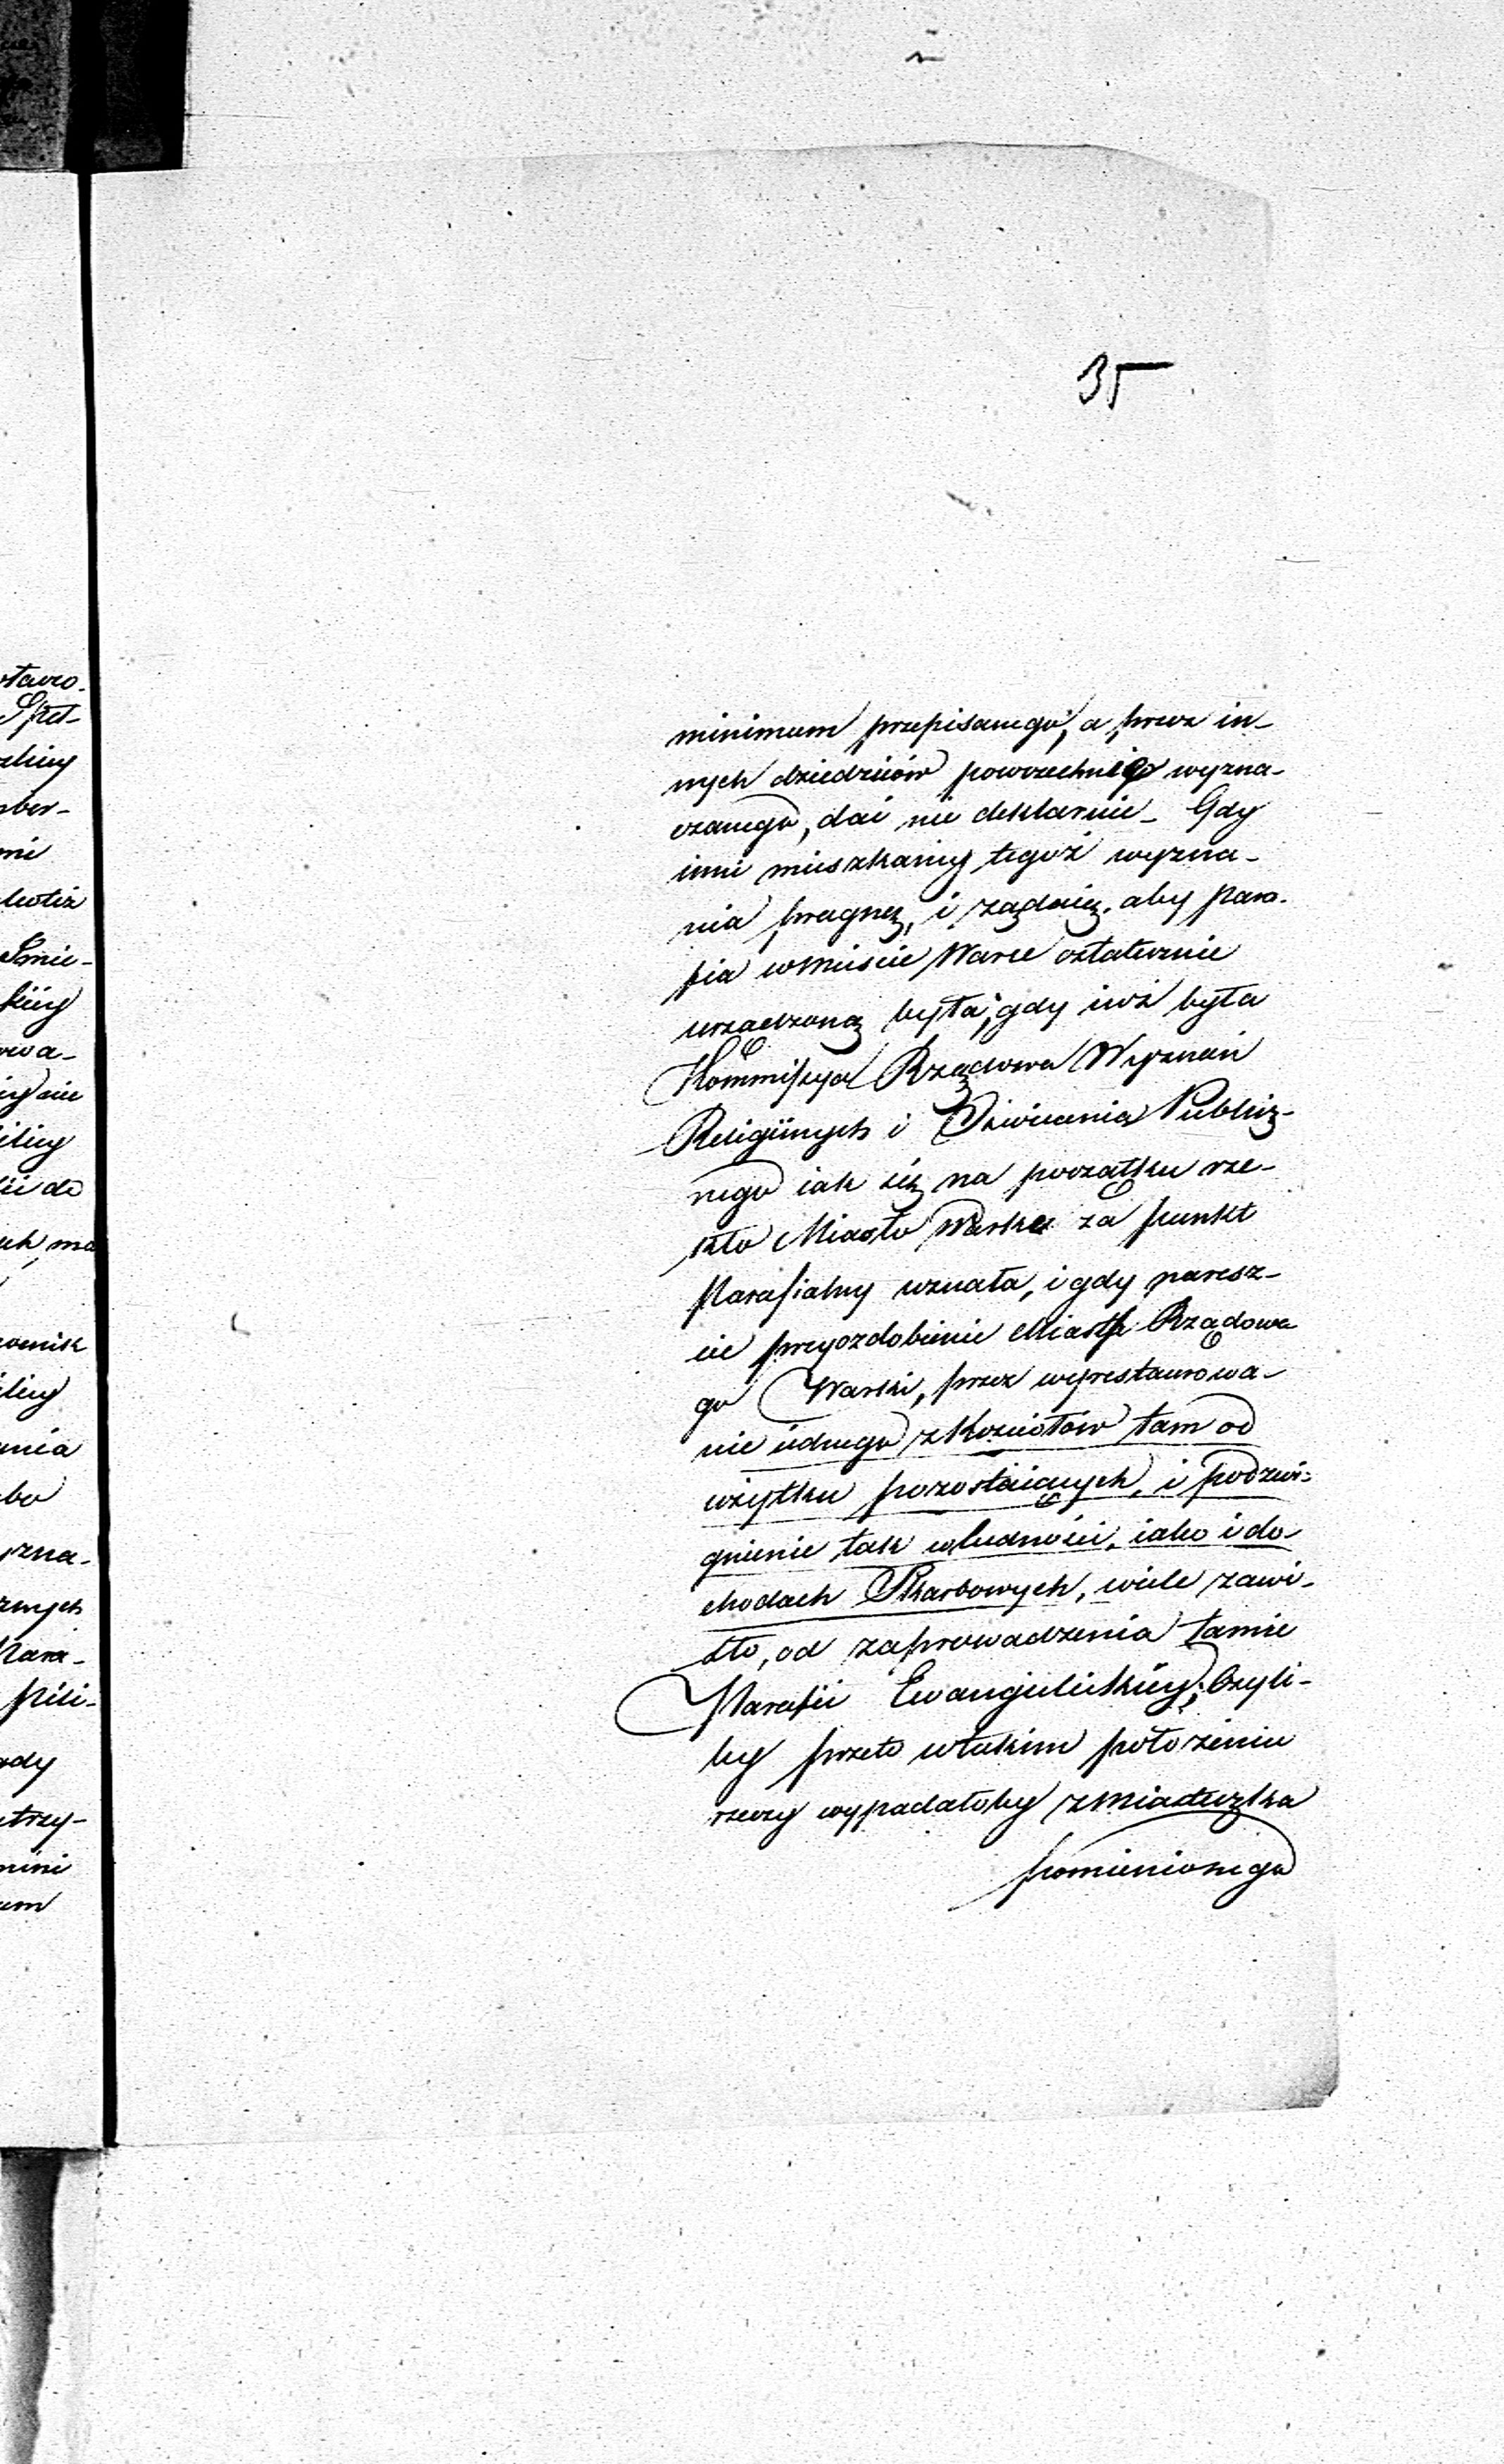 35
minimum przepisanego, a przez in-
nych dziedziców powszechnie wyzna-
czanego, dać nie deklaruie_ Gdy
inni mieszkańcy tegoż wyzna-
nia pragną, i żądaią. aby para-
fia w mieście Warce ostatecznie
urządzoną była; gdy iuż była
Kommissya Rządowa Wyznań
Religiinych i Oświecenia Publicz-
nego iak się na początku rze-
kło Miasto Warkę za punkt
Parafialny uznała, i gdy naresz-
cie przyozdobienie Miasta Rządowe
go Warki, przez wyrestaurowa-
nie iednego z Kościołów tam od
użytku pozostaiących, i podzwi-
gnienie tak w ludności, iako i do-
chodach Skarbowych, wiele zawi-
sło, od zaprowadzenia tamże
Parafii Ewangielickiey; Czyli-
by przeto w takim położeniu
rzeczy wypadałoby z Miasteczka
pomienionego
stawo-
ber-
mi
nie
ilicy
uk, ma
ilicy
ania
bo
zna-
znych
Para-
Pili-
ady
trzy-
mini
um